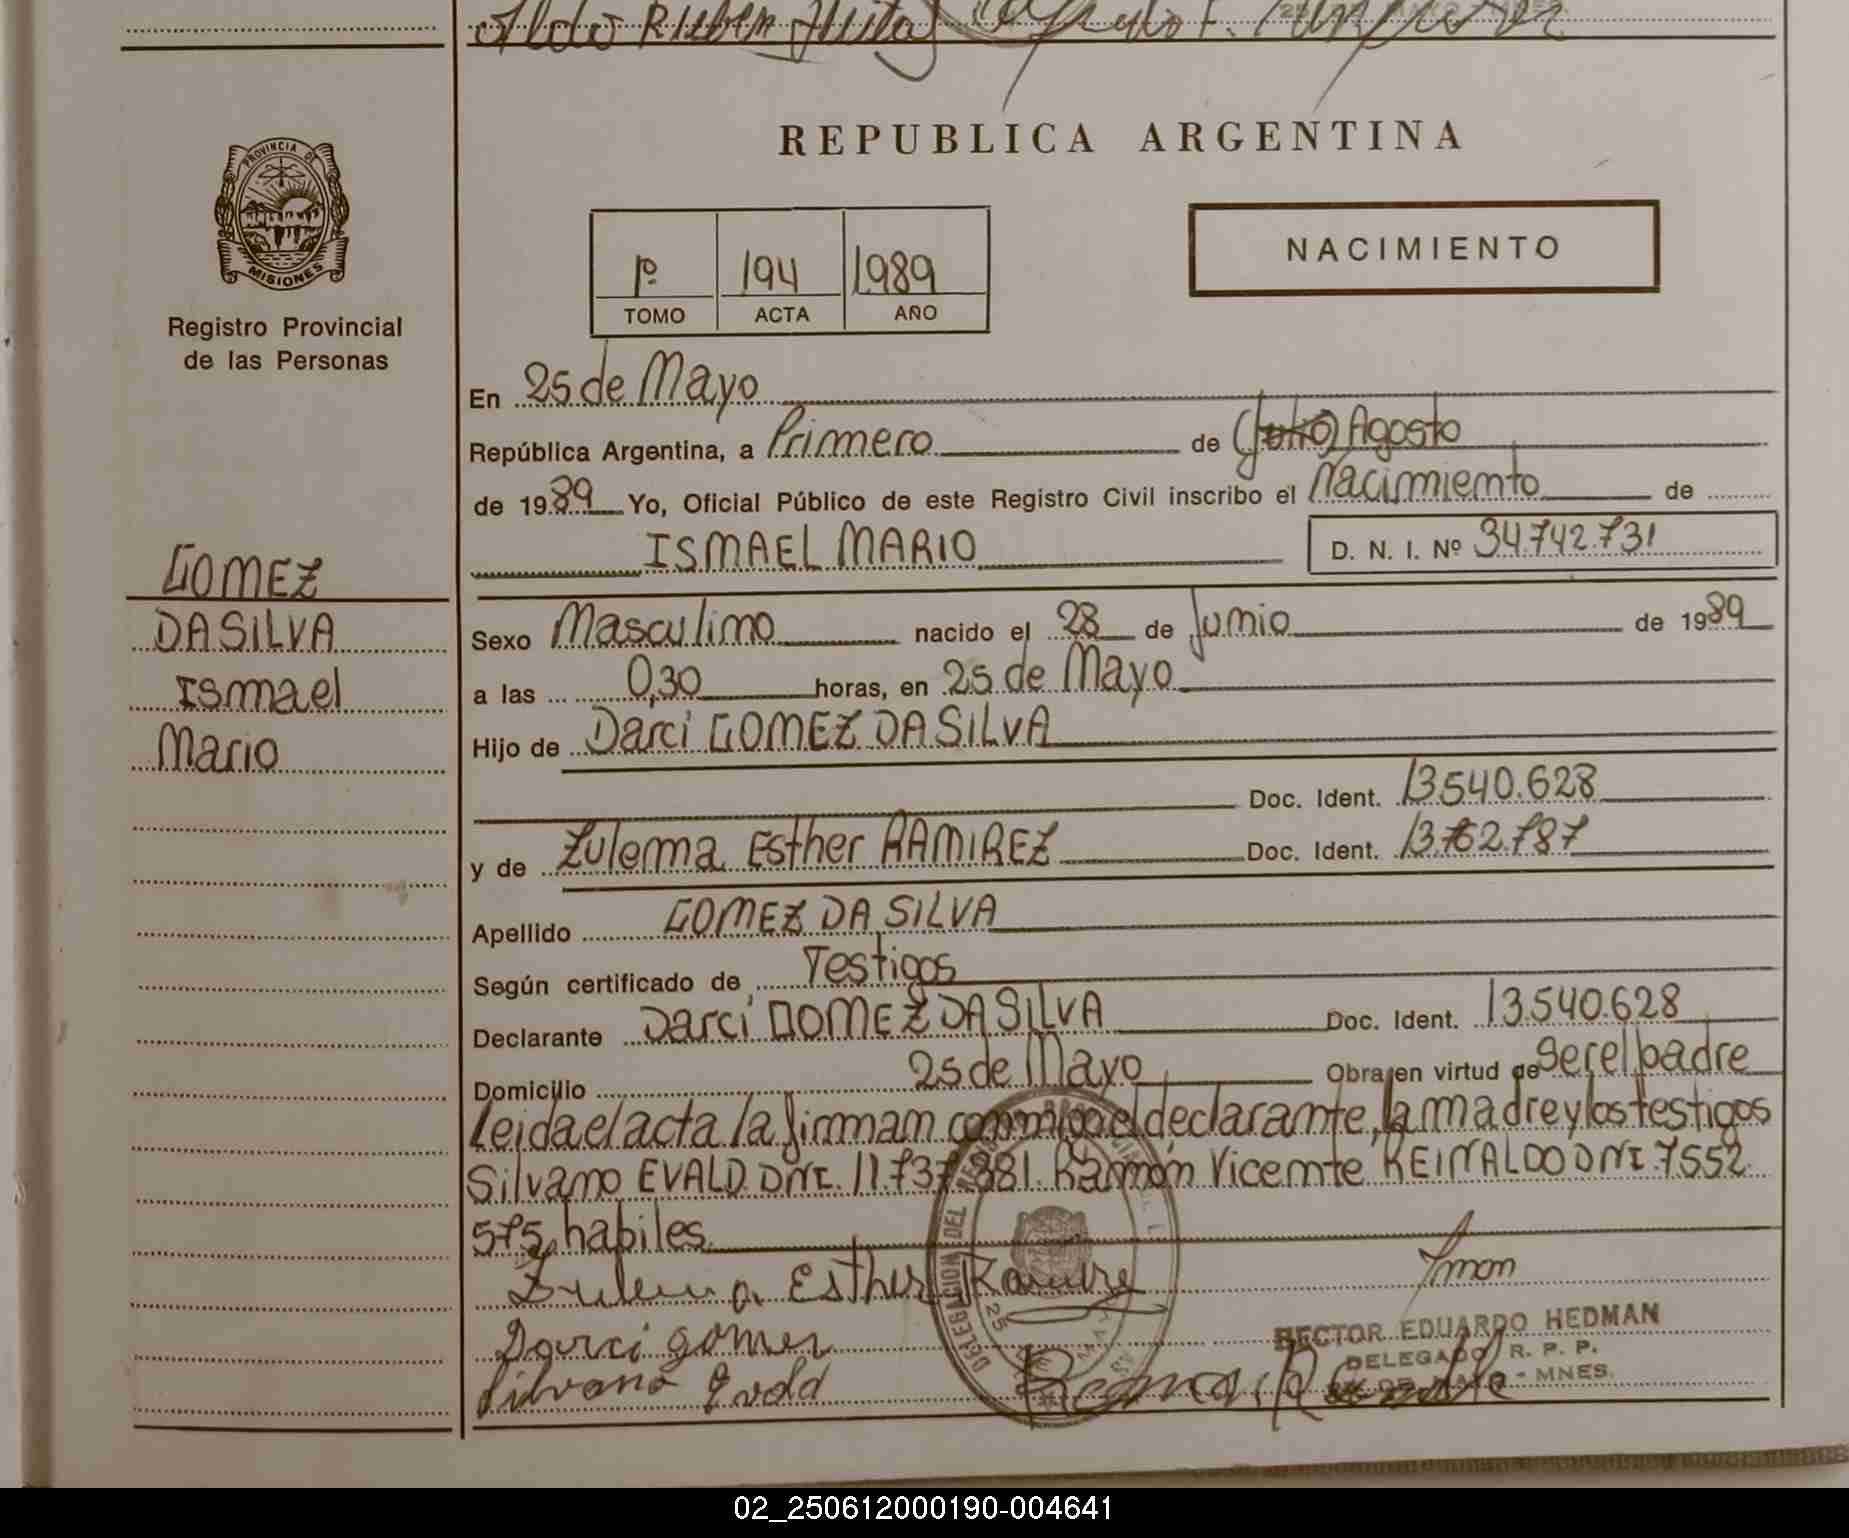 Aldo Ruben
REPUBLICA ARGENTINA
PROVINCIA DE
MISIONES
Registro Provincial
de las Personas
1º 194 1989
TOMO ACTA AÑO
NACIMIENTO
En 25 de Mayo
República Argentina, a Primero de (Julio) Agosto
de 1989 Yo, Oficial Público de este Registro Civil inscribo el Nacimiento de
ISMAEL MARIO D. N. I. Nº 34.742.731
GOMEZ
DA SILVA
Ismael
Mario
Sexo Masculino nacido el 28 de Junio de 1989
a las 0,30 horas, en 25 de Mayo
Hijo de Darci GOMEZ DA SILVA
Doc. Ident. 13.540.628
y de Zulema Esther RAMIREZ Doc. Ident. 13.762.787
Apellido GOMEZ DA SILVA
Según certificado de Testigos
Declarante Darci GOMEZ DA SILVA Doc. Ident. 13.540.628
Domicilio 25 de Mayo Obra en virtud de ser el padre
Leida el acta la firman conmigo el declarante, la madre y los testigos
Silvano EVALD DNI. 11.737.881. Ramón Vicente REINALDO DNI. 7552
575, habiles.
Zulema Esther Ramirez
Darci gomes
Silvano Evald
DELEGACION DEL
25 DE MAYO
HECTOR EDUARDO HEDMAN
DELEGADO R. P. P.
25 DE MAYO - MNES.
02_250612000190-004641